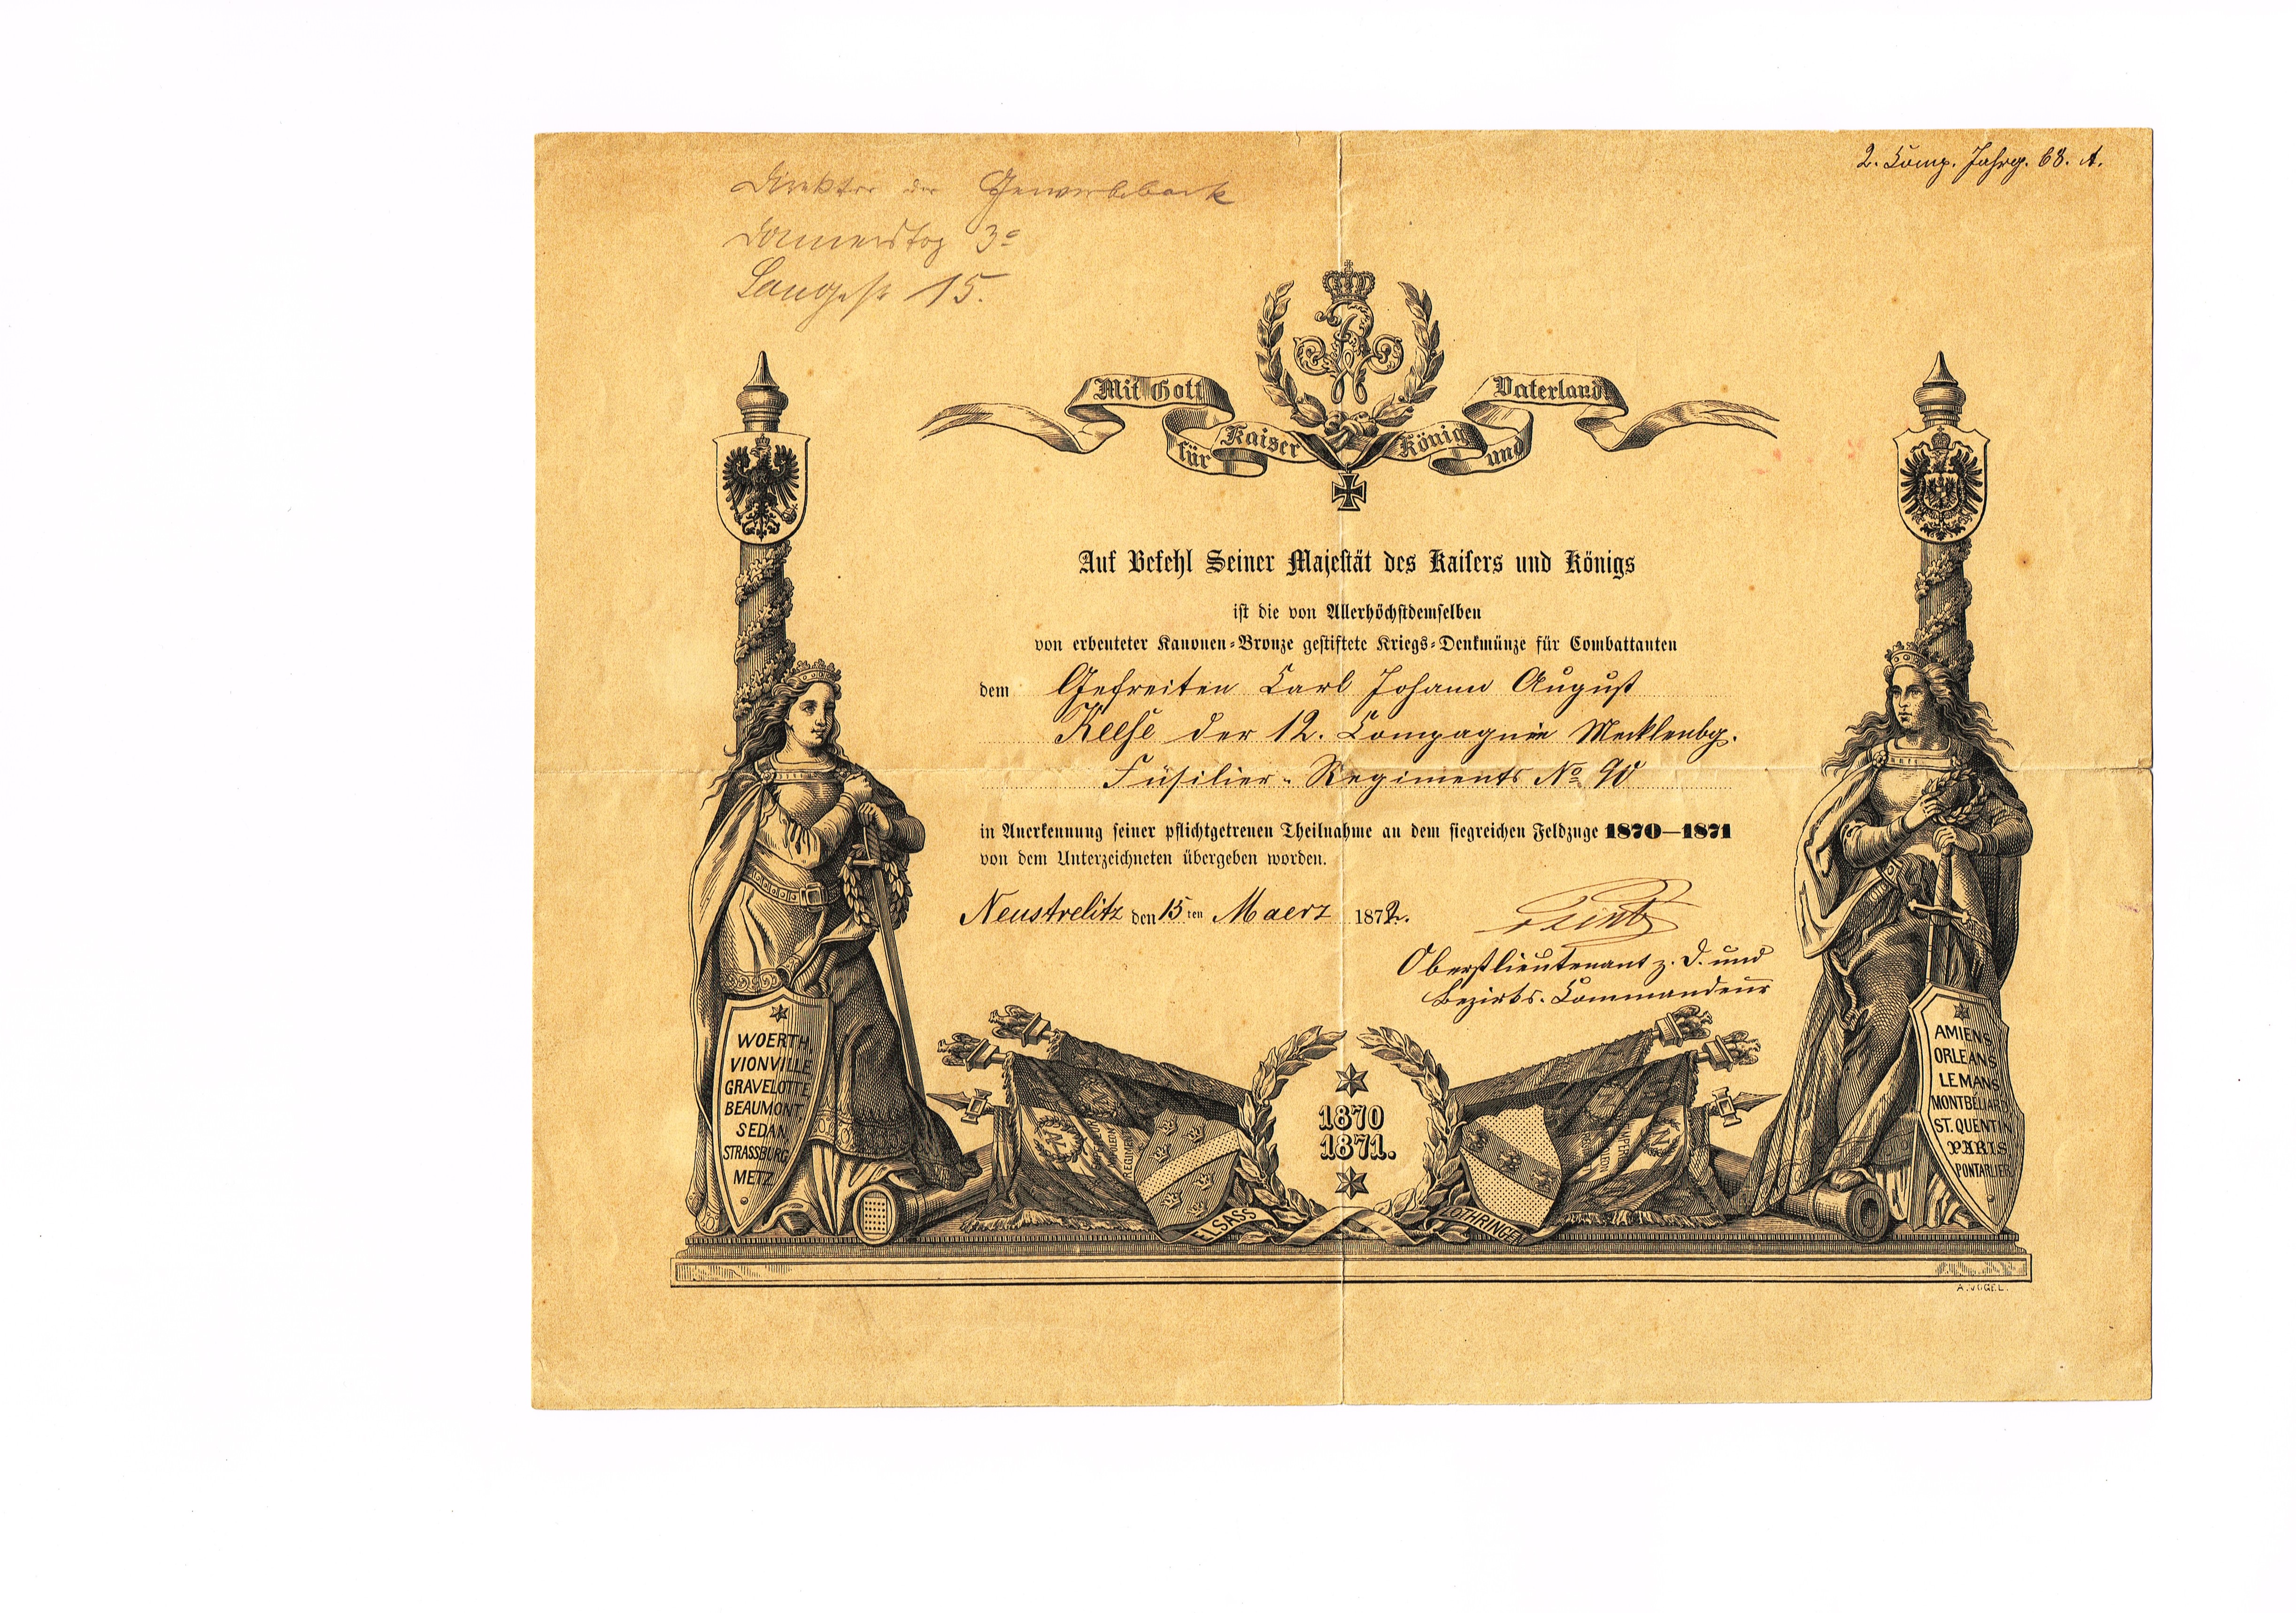 2. Comp. Jahrg. 68. A.
Direktor der Gewerbebank
Donnerstag 3º
Langestr 15.
Mit Gott
für Kaiser
König und
Vaterland.
Auf Befehl Seiner Majestät des Kaisers und Königs
ist die von Allerhöchstdemselben
von erbeuteter Kanonen-Bronze gestiftete Kriegs-Denkmünze für Combattanten
dem Gefreiten Carl Johann August
Reese der 12. Compagnie Mecklenbg.
Füsilier-Regiments No 90
in Anerkennung seiner pflichtgetreuen Theilnahme an dem siegreichen Feldzuge 1870—1871
von dem Unterzeichneten übergeben worden.
Neustrelitz den 15ten Maerz 1872.
Oberstlieutenant z. D. und
Bezirks-Commandeur
WOERTH
VIONVILLE
GRAVELOTTE
BEAUMONT
SEDAN
STRASSBURG
METZ
AMIENS
ORLEANS
LE MANS
MONTBELIARD
ST. QUENTIN
PARIS
PONTARLIER
1870
1871.
ELSASS
LOTHRINGEN
A. VOGEL.